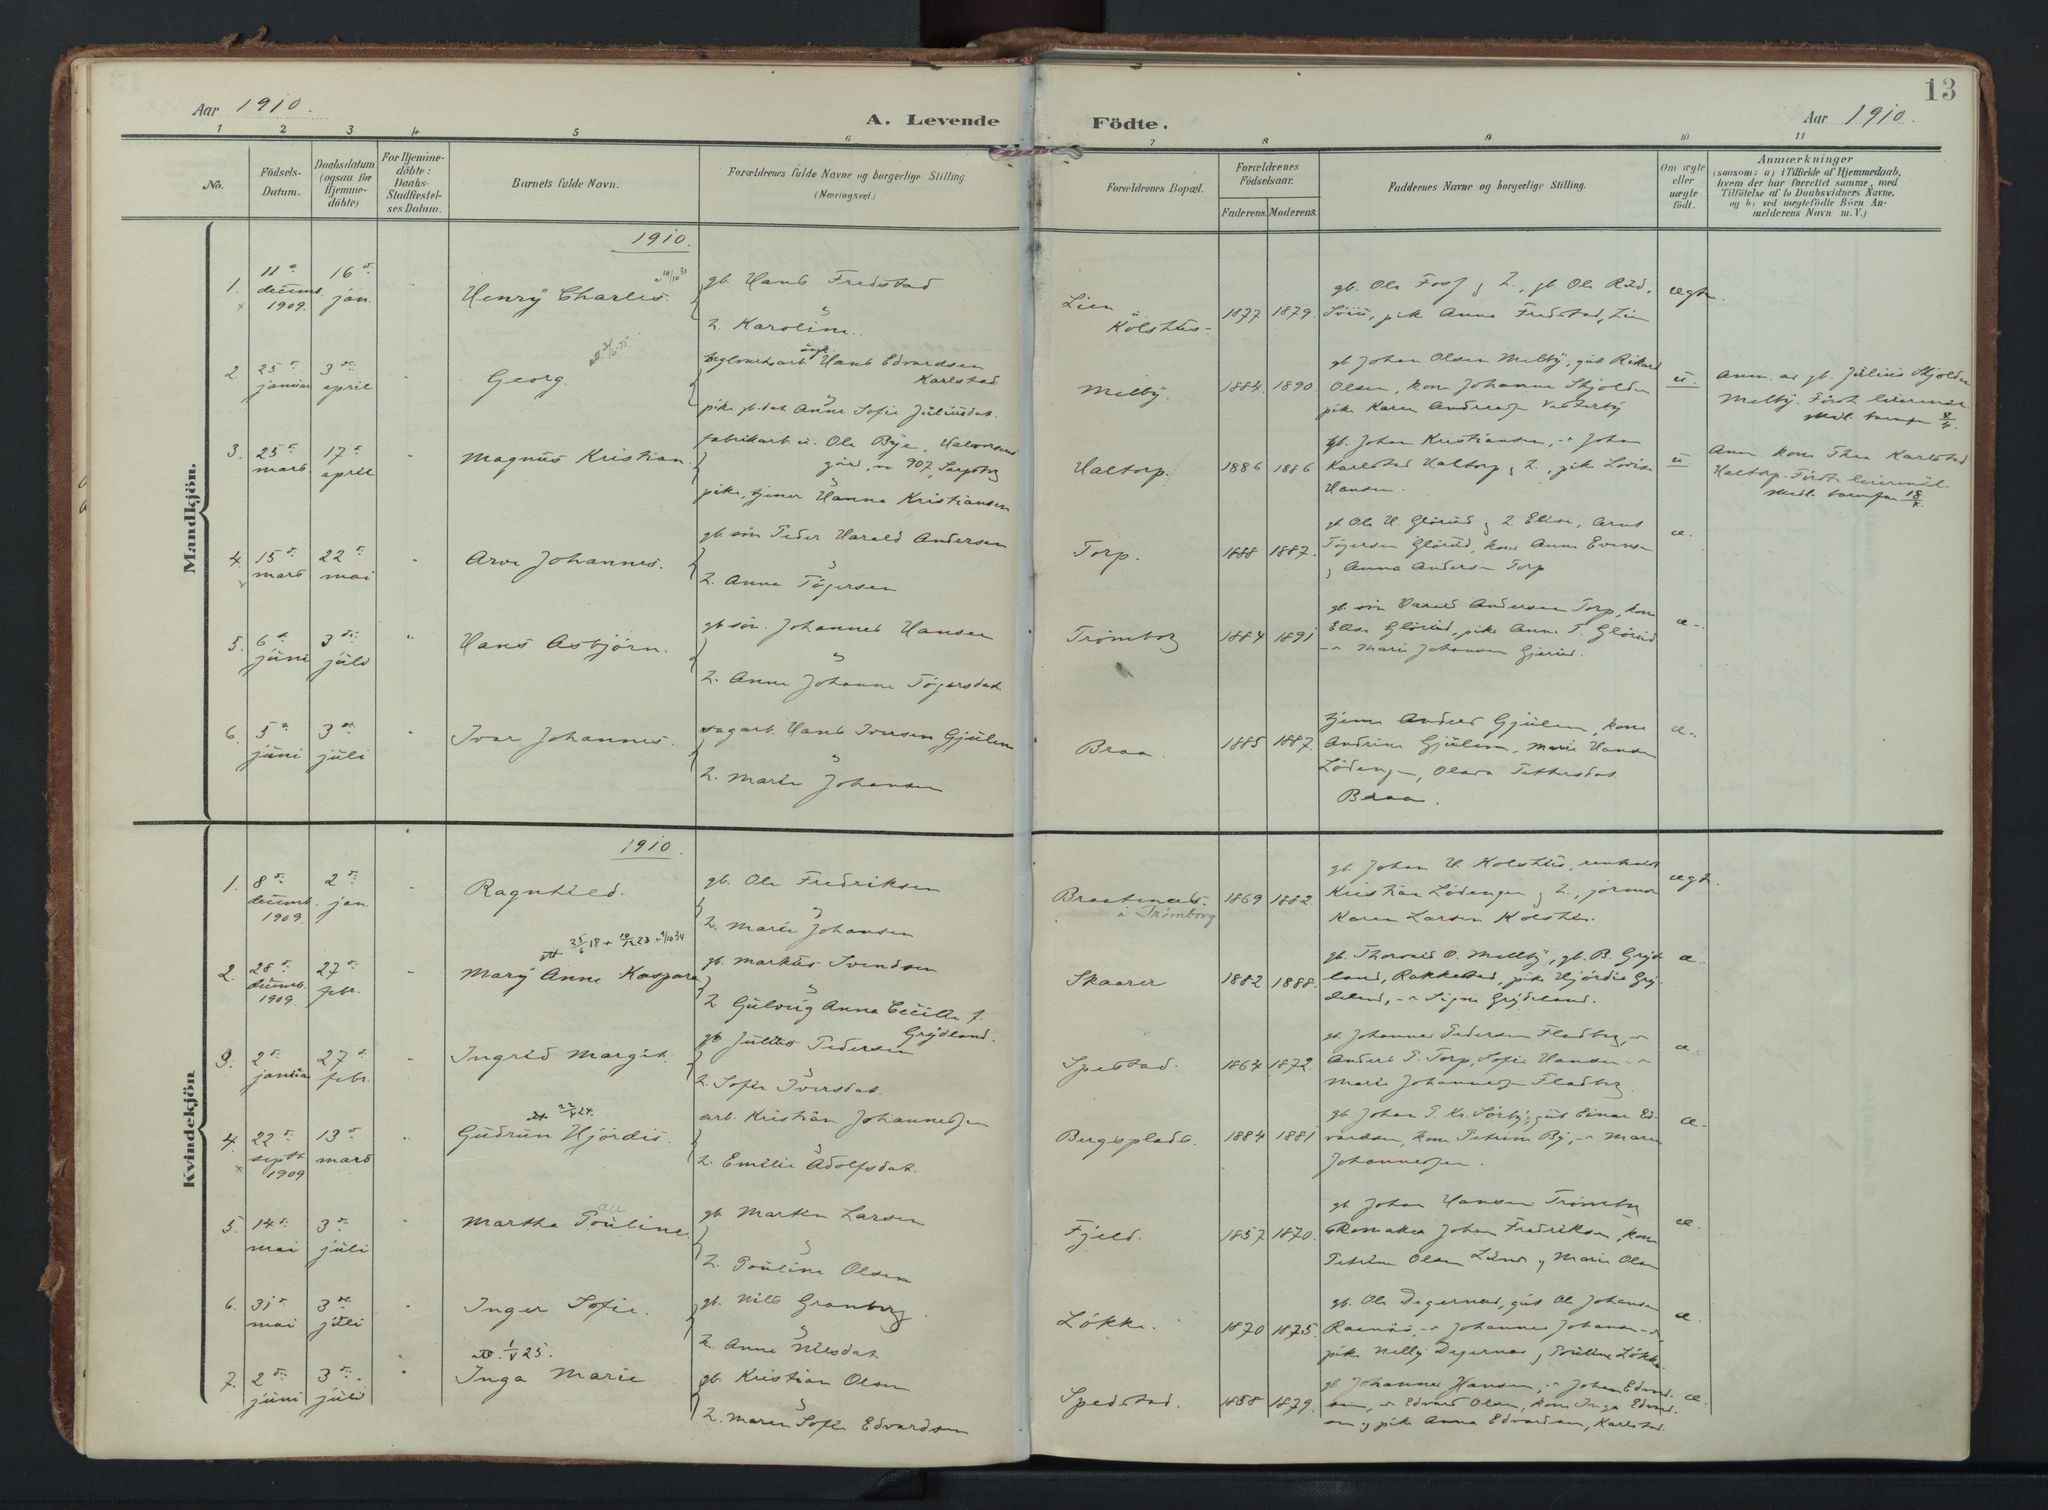 13
Aar 1910.
A. Levende Födte.
Aar 1910.
1 2 3 4 5 6 7 8 9 10 11
No.
Födsels-
Datum.
Daabsdatum
(ogsaa for
Hjemme-
döbte)
For Hjemme-
döbte:
Daabs-
Stadfæstel-
ses Datum.
Barnets fulde Navn.
Forældrenes fulde Navne og borgerlige Stilling
(Næringsvei.)
Forældrenes Bopæl.
Forældrenes
Födselsaar.
Faderens. Moderens.
Faddernes Navne og borgerlige Stilling.
Om ægte
eller
uægte
födt.
Anmærkninger
(saasom: a) i Tilfælde af Hjemmedaab,
hvem der har forrettet samme, med
Tilföielse af to Daabsvidners Navne.
og b) ved uægtefödte Börn An-
melderens Navn m. V.)
Mandkjön.
1910.
1. 11 decemb. 1909. 16 jan. Henry Charles.
gb. Hans Fredstad
2. Karoline.
Lien Kölshus- 1877 1879.
gb. Ole Foss , gb. Ole Rud,
pike Anna Fredstad, Lien
ægte.
2. 25 januar 3 april Georg.
ungk. Hans Edvardsen
Karlstad
pike gb. dat. Anne Sofie Juliusdat.
Melby. 1884. 1890.
gb. Johan Olsen Melby, gut Rikard
Olsen, kone Johanne Skjolden
pike Karen Andreasen
u.
Anm. av gb. Julius Skjolden
Melby. Först leiermål
3. 25 mars 17 april Magnus Kristian.
fabrikarb. u. Ole Bye, Halvorsens
gård, no 907, Sarpsborg
pike, tjener Hanna Kristiansen
Haltorp. 1886 1886
gb. Johan Kristiansen, Johan
Karlstad Haltorp , pike Lovise
Hansen.
u
Anm. kone Thea Karlstad
Haltorp. Först leiermål
4. 15 mars 22 mai Arve Johannes.
gb. sön Peder Harald Andersen
2. Anna Tögersen
Torp. 1888 1887.
gb. Ole H. Glörud 2 Elise,
Tögersen Glörud, kone Anne Evensen
Anna Andersen Torp
æ.
5. 6 juni 3 juli Hans Asbjörn.
gb sön. Johannes Hansen
2. Anne Johanne Tögersdat.
Trömborg 1884 1891
gb. sön Harald Andersen Torp, kone
Elise Glörud, pike Anne T. Glörud
Marie Johansen Gjerud.
æ.
6. 5 juni 3 juli Ivar Johannes.
sagarb. Hans Iversen Gjulem
2. Marie Johansen
Braa. 1885 1887.
Anders Gjulem, kone
Andrine Gjulem, Marie Hansen
Lödeng, Olava Pettersdat.
Braa.
æ.
Kvindekjön
1910.
1. 8 decemb. 1909. 2 jan. Ragnhild.
gb. Ole Fredriksen
2. Marie Johansen
Braatenæs.
i Trömborg
1869 1882.
gb. Johan H. Kolshus,
Kristian Lödengen , jormor
Karen Larsen Kolshus.
ægte.
2. 28 decemb. 1909. 27 febr.
Mary Anne Kaspara
gb. Markus Svendsen
2 Gulvig Anna Cecilie f.
Grydeland.
Skaarer 1882 1888.
gb. Thorvald O. Melby, gb. B. Gryde-
land, Rakkestad, pike Hjördis Gry-
deland, Signe Grydeland.
æ.
3. 2 januar 27 febr. Ingrid Margit.
gb Julius Pedersen
2. Sofie Iversdat.
Spestad. 1864 1872.
gb. Johannes Pedersen Fladberg,
Anders P. Torp, Sofie Hansen
Marie Johannesen Fladberg
æ.
4. 22 septb. 1909 13 mars
att 22/5 24.
Gudrun Hjördis.
arb. Kristian Johannessen
2. Emilie Adolfsdat.
Bergsplads. 1884 1881
gb. Johan P. Kr. Sörby, gut Einar Ed-
vardsen, kone Petrine By, Maren
Johannessen.
æ.
5. 14 mai 3 juli Martha Pouline.
gb. Martin Larsen
2. Pouline Olsen
Fjeld. 1857 1870.
gb Johan Hansen Trömborg
skomaker Johan Fredriksen, kone
Petrine Olsen Lund Marie Olsen
æ.
6. 31 mai 3 juli Inger Sofie.
gb. Nils Granberg.
2. Anne Nilsdat
Lökke. 1870 1875.
gb. Ole Degernes, gut Ole Johansen
Johannes Johansen
pike Nelly Degernes Pouline Lökke
æ
att. 1/5 25.
7. 2 juni 3 juli Inga Marie
gb. Kristian Olsen
2. Maren Sofie Edvardsen
Spedstad. 1858 1879.
gb Johannes Hansen, Johan Edvard-
sen, Edvard Olsen, kone Inga Edvard-
sen pike Anna Edvardsen, Karlstad.
æ.